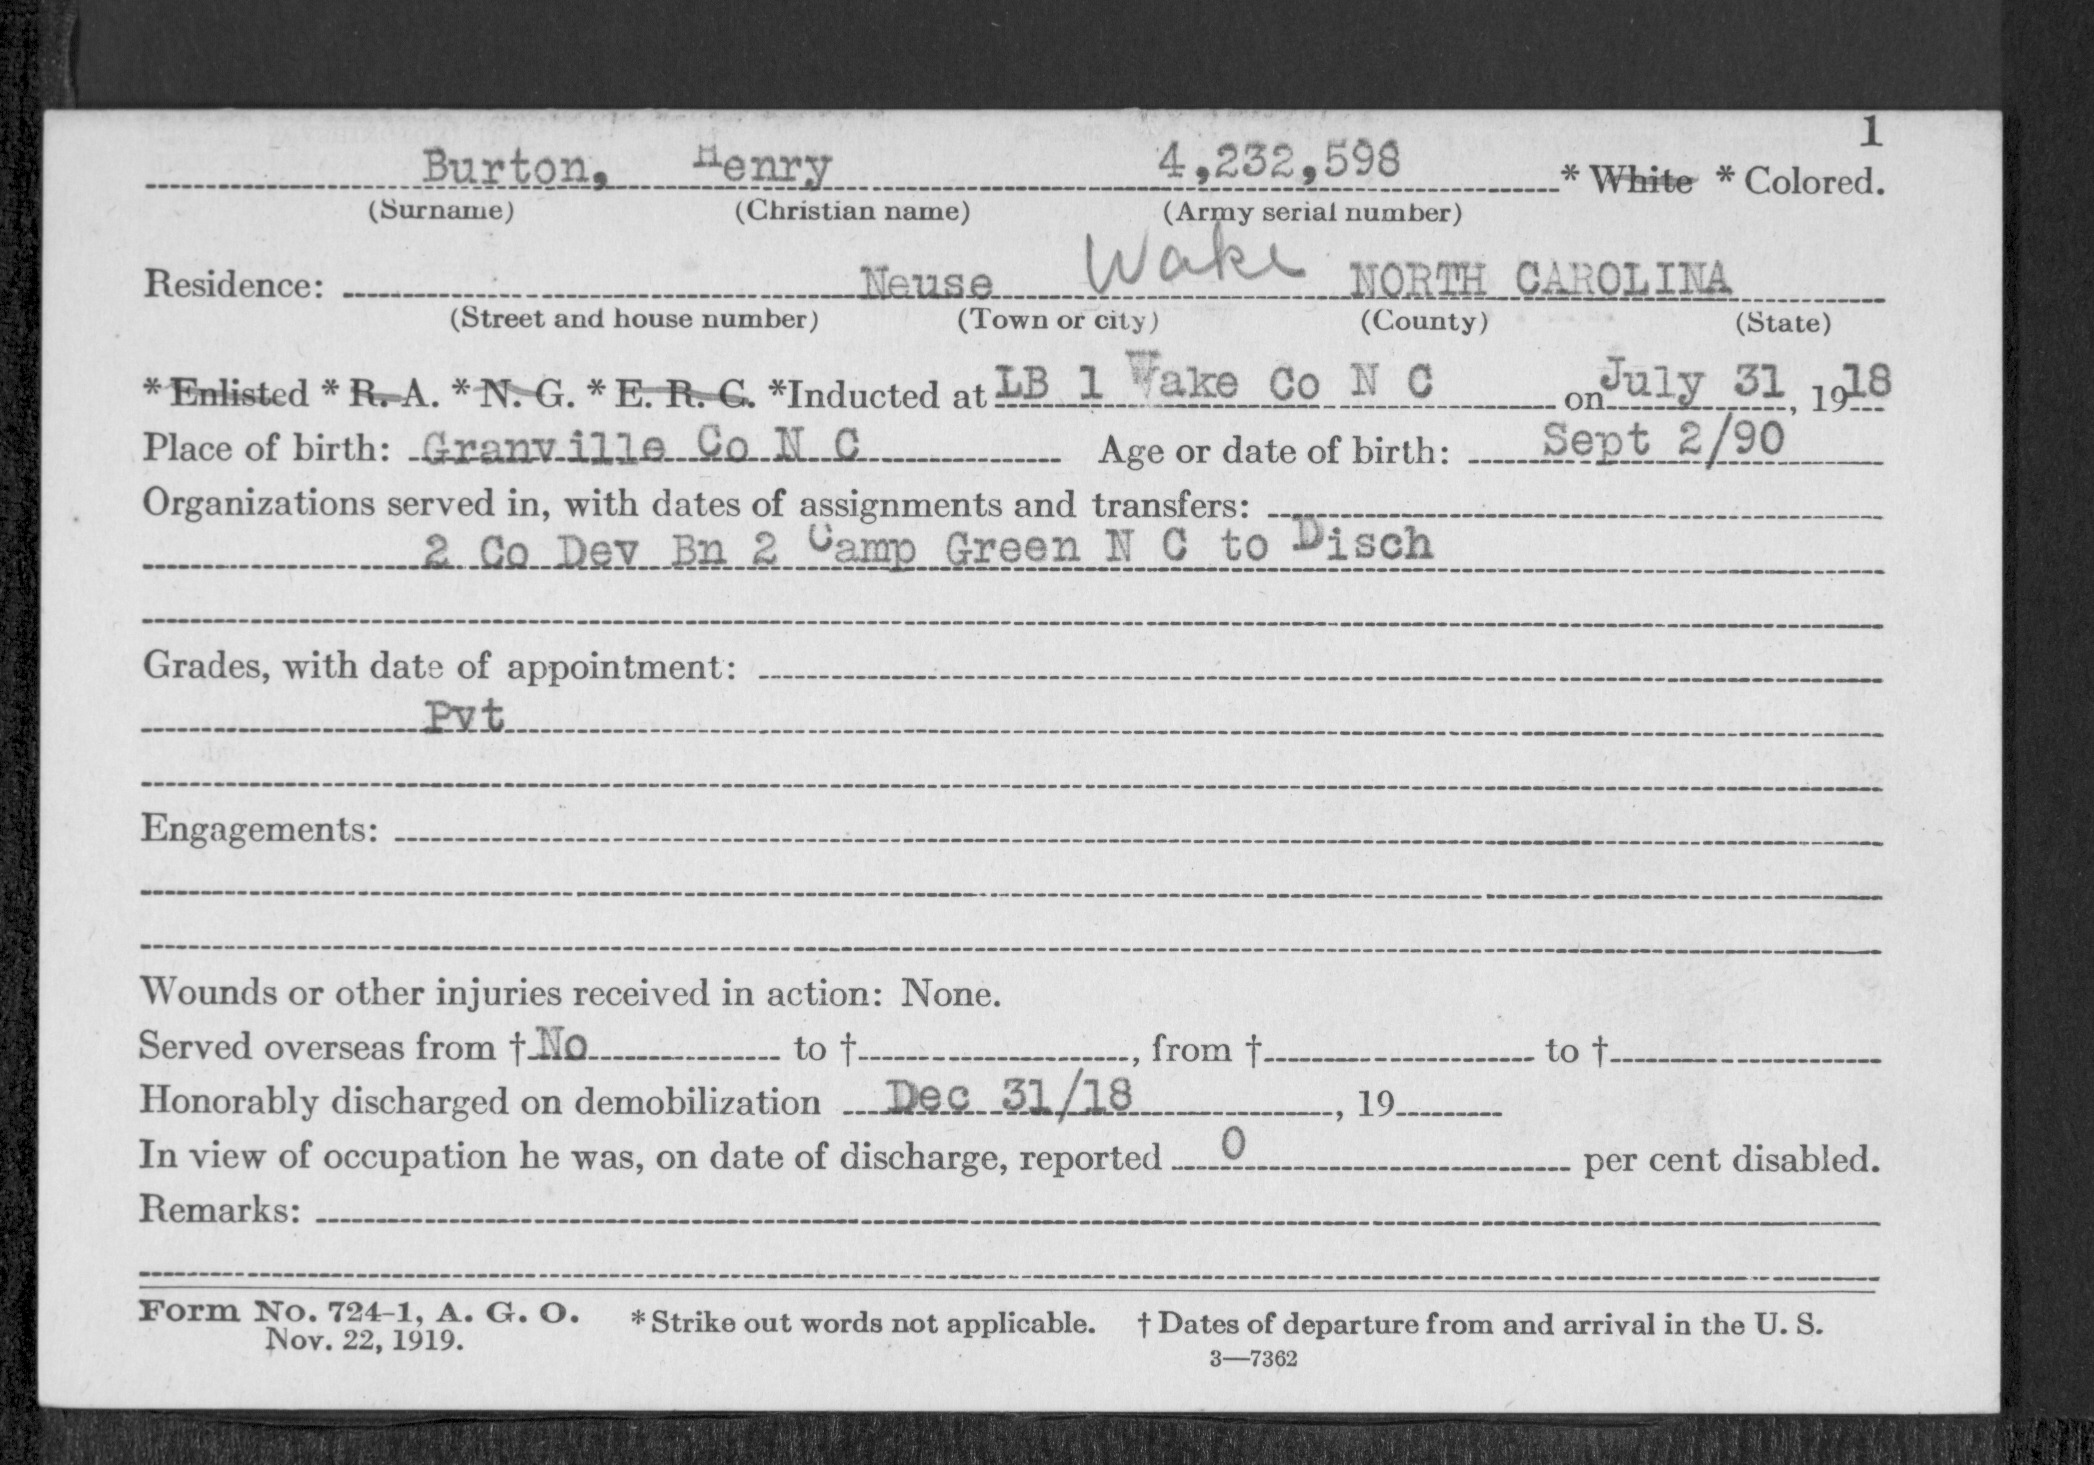 1
Burton, Henry 4,232,598 * White * Colored.
(Surname) (Christian name) (Army serial number)
Residence: Neuse Wake NORTH CAROLINA
(Street and house number) (Town or city) (County) (State)
* Enlisted * R. A. * N. G. * E. R. C. *Inducted at LB 1 Wake Co N C on July 31, 1918
Place of birth: Granville Co N C Age or date of birth: Sept 2/90
Organizations served in, with dates of assignments and transfers:
2 Co Dev Bn 2 Camp Green N C to Disch
Grades, with date of appointment:
Pvt
Engagements:
Wounds or other injuries received in action: None.
Served overseas from † No to † , from † to †
Honorably discharged on demobilization Dec 31/18 , 19
In view of occupation he was, on date of discharge, reported 0 per cent disabled.
Remarks:
Form No. 724-1, A. G. O. * Strike out words not applicable. † Dates of departure from and arrival in the U. S.
Nov. 22, 1919.
3—7362